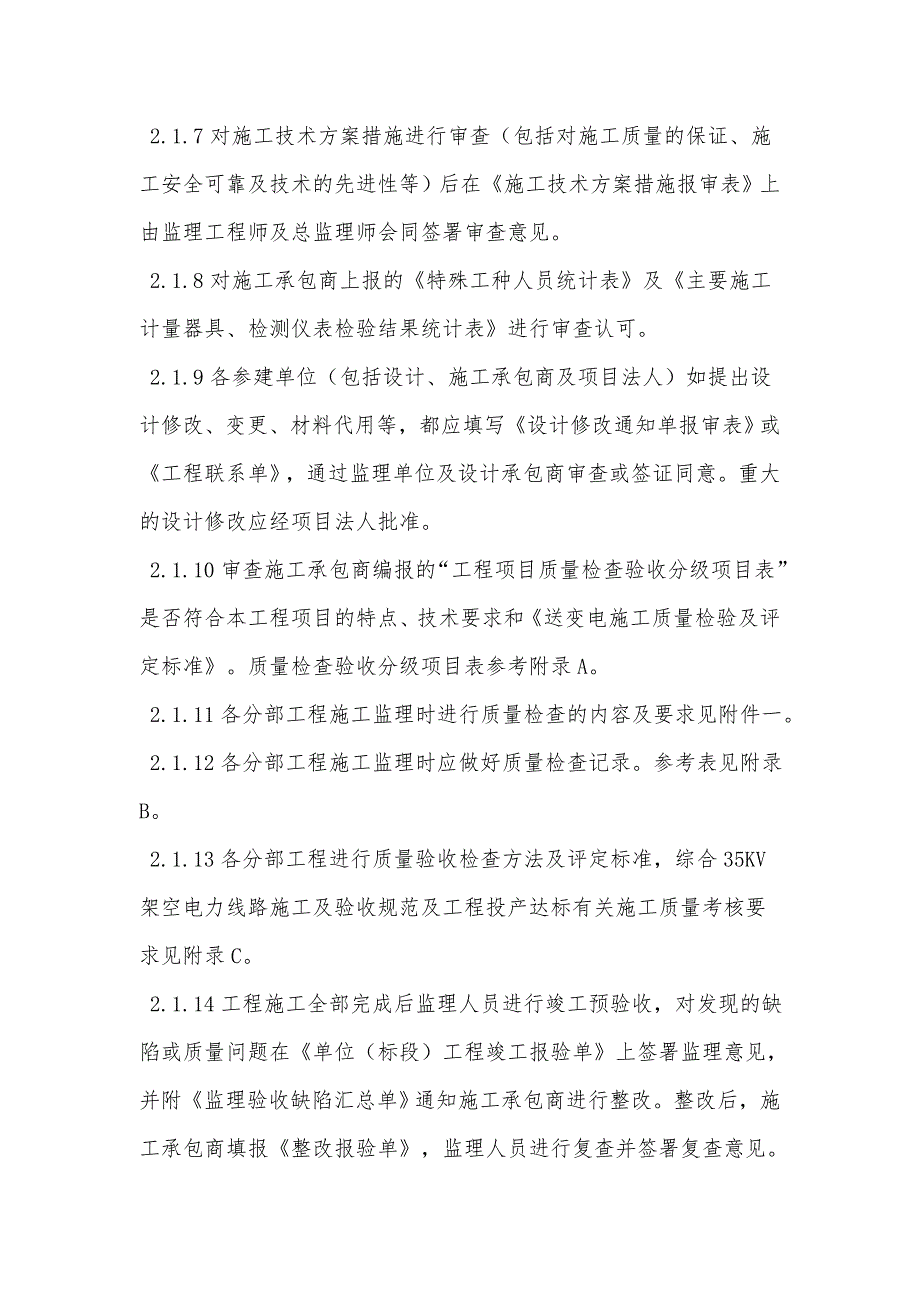 2.1.7 对施工技术方案措施进行审查（包括对施工质量的保证、施
工安全可靠及技术的先进性等）后在《施工技术方案措施报审表》上
由监理工程师及总监理师会同签署审查意见。
2.1.8 对施工承包商上报的《特殊工种人员统计表》及《主要施工
计量器具、检测仪表检验结果统计表》进行审查认可。
2.1.9 各参建单位（包括设计、施工承包商及项目法人）如提出设
计修改、变更、材料代用等，都应填写《设计修改通知单报审表》或
《工程联系单》，通过监理单位及设计承包商审查或签证同意。重大
的设计修改应经项目法人批准。
2.1.10 审查施工承包商编报的“工程项目质量检查验收分级项目表”
是否符合本工程项目的特点、技术要求和《送变电施工质量检验及评
定标准》。质量检查验收分级项目表参考附录 A。
2.1.11 各分部工程施工监理时进行质量检查的内容及要求见附件一。
2.1.12 各分部工程施工监理时应做好质量检查记录。参考表见附录
B。
2.1.13 各分部工程进行质量验收检查方法及评定标准，综合 35KV
架空电力线路施工及验收规范及工程投产达标有关施工质量考核要
求见附录 C。
2.1.14 工程施工全部完成后监理人员进行竣工预验收，对发现的缺
陷或质量问题在《单位（标段）工程竣工报验单》上签署监理意见，
并附《监理验收缺陷汇总单》通知施工承包商进行整改。整改后，施
工承包商填报《整改报验单》，监理人员进行复查并签署复查意见。